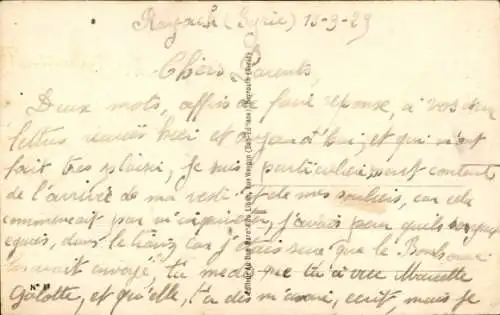 Rayack (Syrie) 13-9-29
Chers Parents,
Deux mots, affris de faire réponse, a vos deux
lettres recues hier et aujourd'hui, et qui m'ont
fait tres plaisir, je suis particulièrement content
de l'arrivée de ma veste et de mes souliers, car cela
commencait par m'inquieter, j'avais peur qu'ils
dans le car j'etais sure que le Bonhomme
envoyé, tu me dis que tu a vue Marcelle
Galotte, et qu'elle, t'a dis m'avoir, ecrit, mais je
N° 18